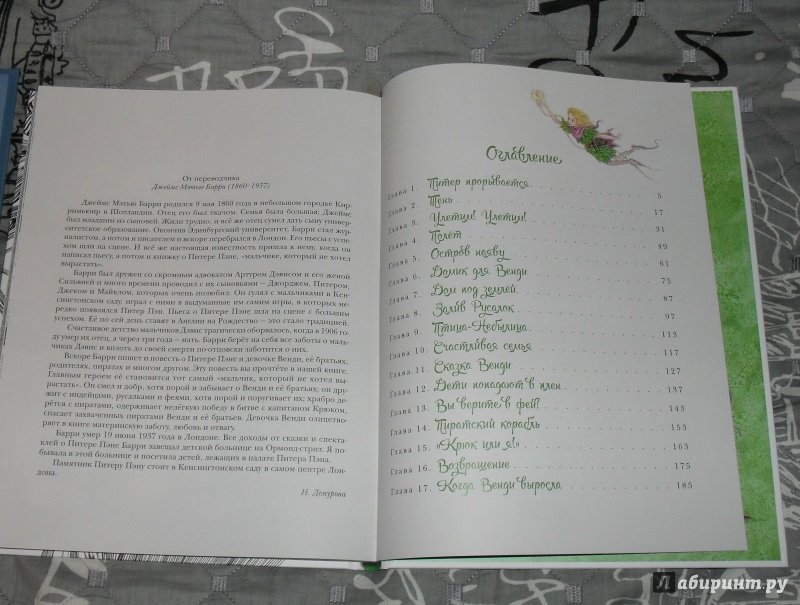 От переводчика
Джеймс Мэтью Барри (1860–1937)
Джеймс Мэтью Барри родился 9 мая 1860 года в небольшом городке Кир-
римьюир в Шотландии. Отец его был ткачом. Семья была большая; Джеймс
был младшим из сыновей. Жили трудно, и всё же отец сумел дать сыну универ-
ситетское образование. Окончив Эдинбургский университет, Барри стал жур-
налистом, а потом и писателем и вскоре перебрался в Лондон. Его пьесы с успе-
хом шли на сцене. И всё же настоящая известность пришла к нему, когда он
написал пьесу, а потом и книжку о Питере Пэне, «мальчике, который не хотел
вырастать».
Барри был дружен со скромным адвокатом Артуром Дэвисом и его женой
Сильвией и много времени проводил с их сыновьями — Джорджем, Питером,
Джеком и Майклом, которых очень полюбил. Он гулял с мальчиками в Кен-
сингтонском саду, играл с ними в выдуманные им самим игры, в которых не-
редко появлялся Питер Пэн. Пьеса о Питере Пэне шла на сцене с большим
успехом. Её по сей день ставят в Англии на Рождество — это стало традицией.
Счастливое детство мальчиков Дэвис трагически оборвалось, когда в 1906
году умер их отец, а через три года — мать. Барри берёт на себя все заботы о маль-
чиках Дэвис и вплоть до своей смерти по-отцовски заботится о них.
Вскоре Барри пишет и повесть о Питере Пэне и девочке Венди, её братьях,
родителях, пиратах и многом другом. Эту повесть вы прочтёте в нашей книге.
Главным героем её становится тот самый «мальчик, который не хотел выра-
стать». Он смел и добр, хотя порой и забывает о Венди и её братьях; он дру-
жит с индейцами, русалками и феями, хотя порой и поругивает их; храбро де-
рётся с пиратами, одерживает нелёгкую победу в битве с капитаном Крюком,
спасает захваченных пиратами Венди и её братьев. Девочка Венди олицетво-
ряет в книге материнскую заботу, любовь и отвагу.
Барри умер 19 июня 1937 года в Лондоне. Все доходы от сказки и спекта-
клей о Питере Пэне Барри завещал детской больнице на Ормонд-стрит. Я по-
бывала в этой больнице и посетила детей, лежащих в палате Питера Пэна.
Памятник Питеру Пэну стоит в Кенсингтонском саду в самом центре Лон-
дона.
Н. Демурова
Оглавление
Глава 1. Питер прорывается 5
Глава 2. Тень 17
Глава 3. Улетим! Улетим! 31
Глава 4. Полёт 49
Глава 5. Остров наяву 61
Глава 6. Домик для Венди 75
Глава 7. Дом под землёй 87
Глава 8. Залив Русалок 97
Глава 9. Птица-Небылица 113
Глава 10. Счастливая семья 117
Глава 11. Сказка Венди 127
Глава 12. Дети попадают в плен 137
Глава 13. Вы верите в фей? 143
Глава 14. Пиратский корабль 153
Глава 15. «Крюк или я!» 163
Глава 16. Возвращение 175
Глава 17. Когда Венди выросла 185
Лабиринт.ру